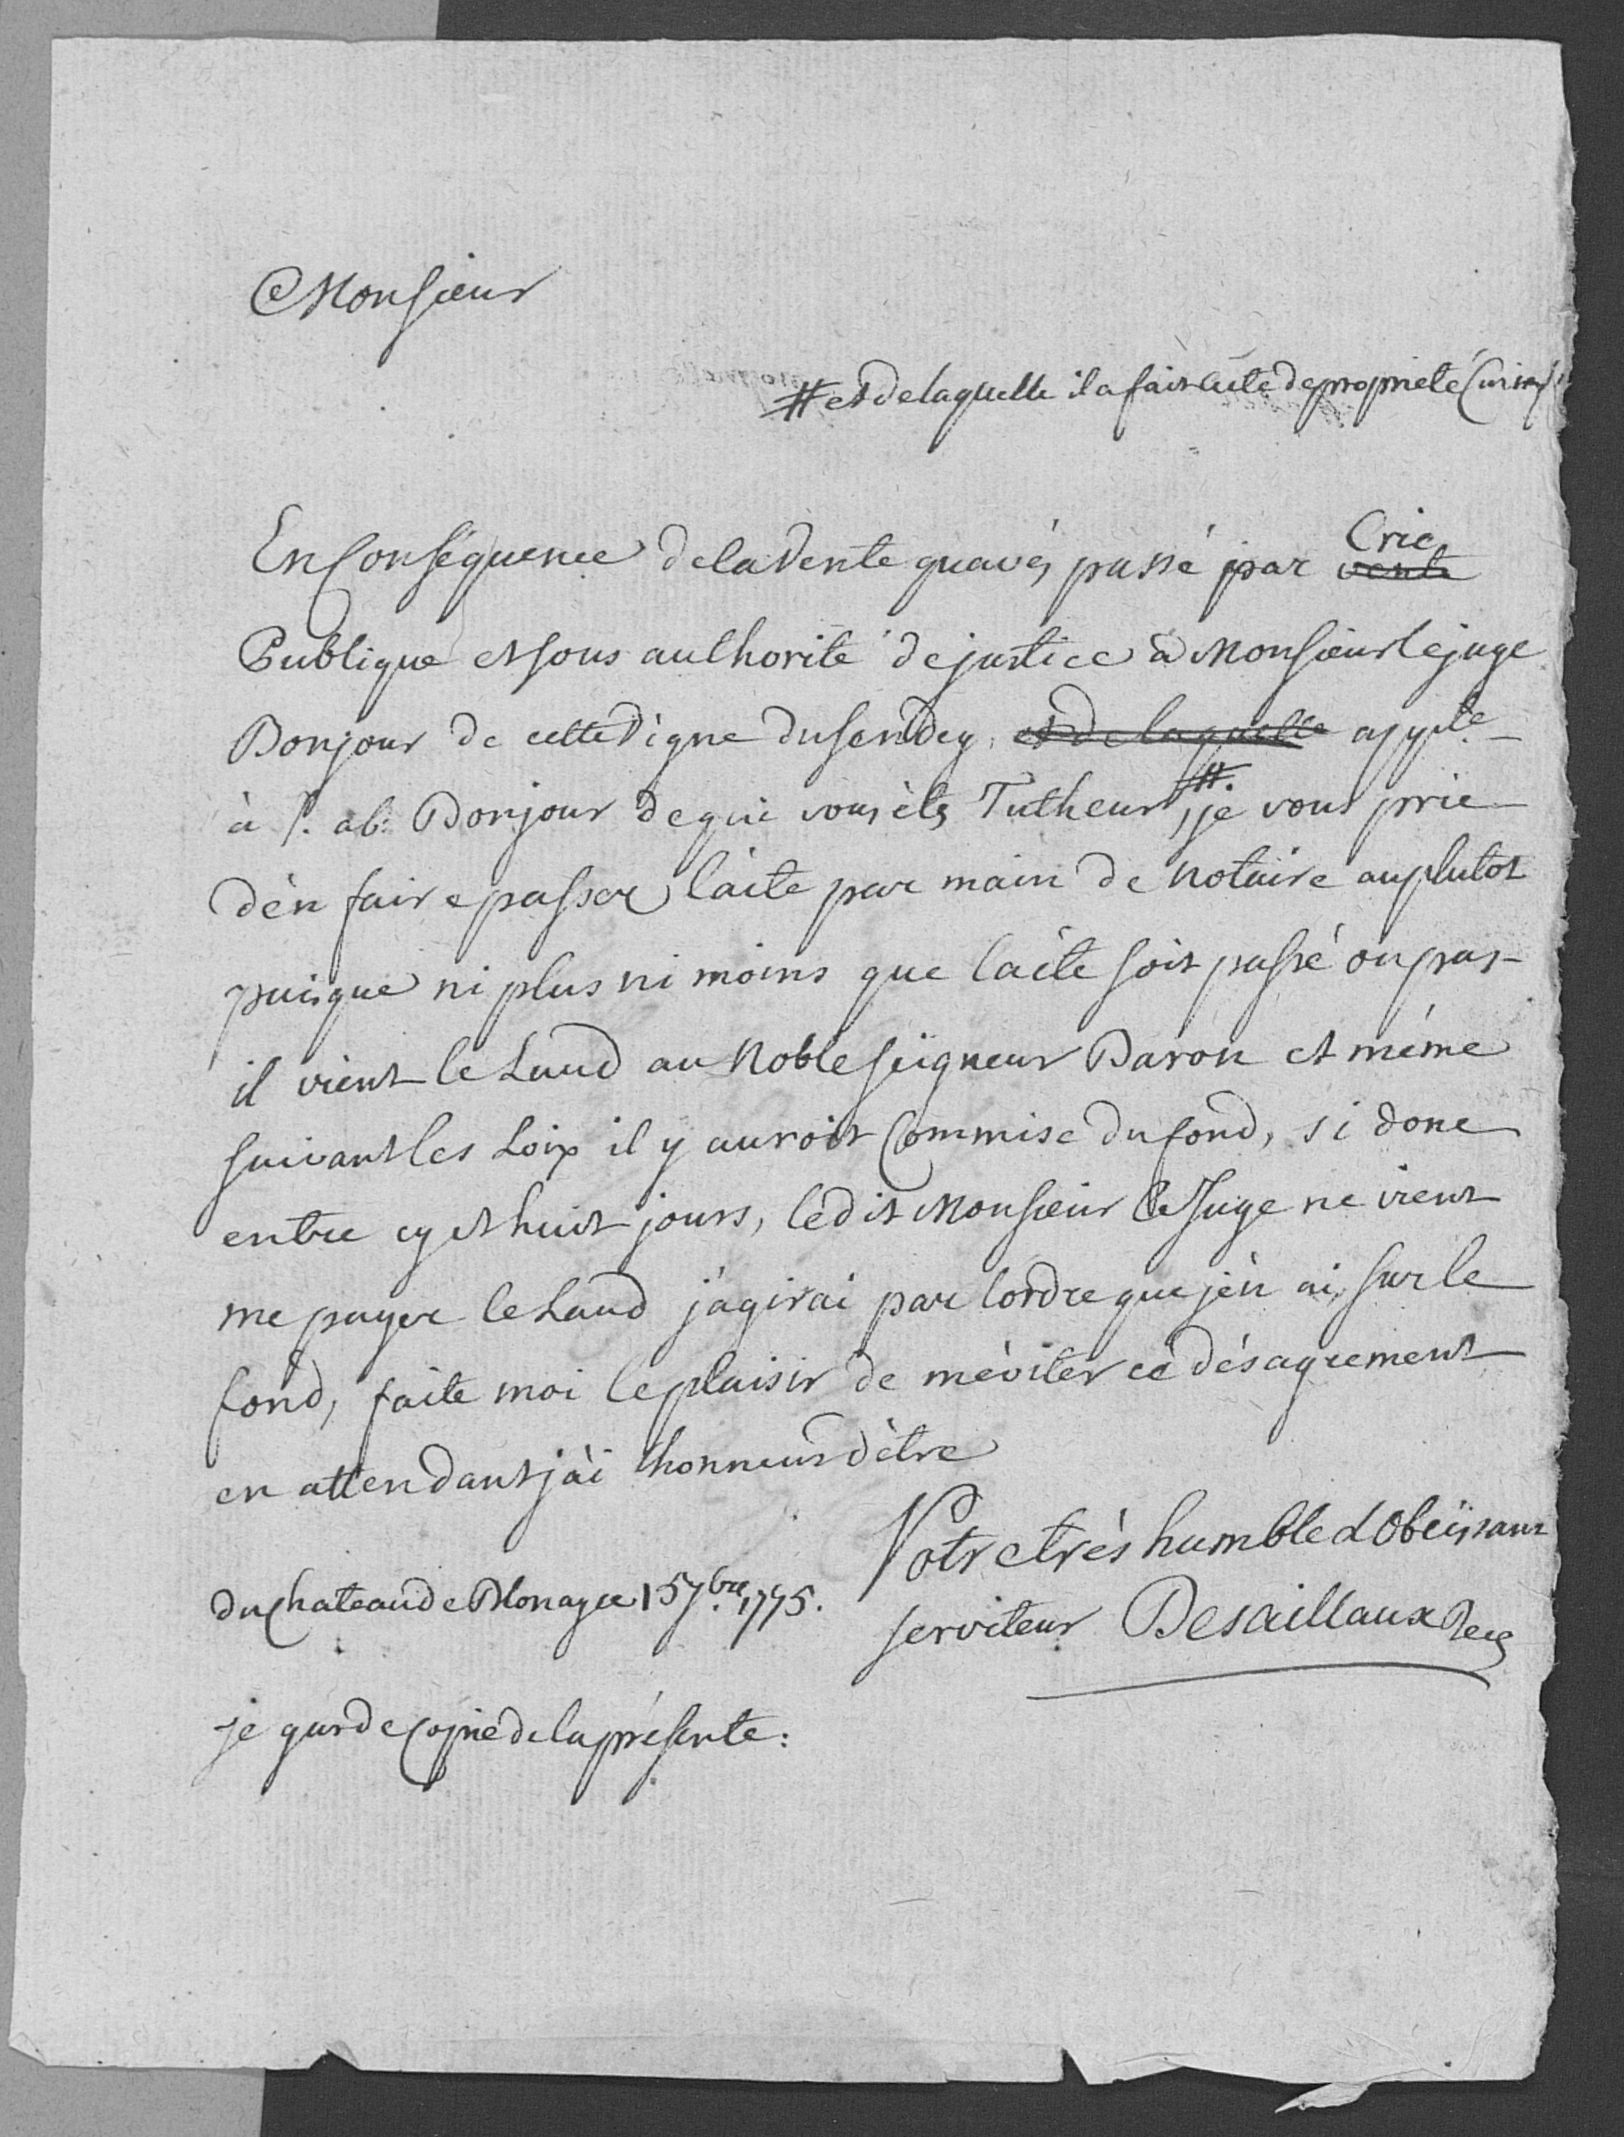 Monsieur
# et de laquelle il a fait acte de proprieté
En Conséquence de la Vente quavés passé par Crie ~~vente~~
Publique et sous authorité de justice à Monsieur le juge
Bonjour de cette Vigne du Sendey, ~~et de laquelle~~ appte
à S. ab: Bonjour de qui vous êts Tutheur, #. je vous prie
dèn faire passer l'acte par main de Notaire au plutot
puisque ni plus ni moins que lacte soit passé ou pas
il vient le Laud au Noble seigneur Baron et méme
suivant les Loix il y auroit Commise du fond, si donc
entre cy et huit jours, lédit Monsieur le Juge ne vient
me payer le Laud j'agirai par lordre que jèn ai, sur le
fond, faite moi le plaisir de mèviter cè désagrement
en attendant jài lhonneur dètre
Votre très humble & Obéissant
du Chateau de Blonay ce 15 7bre. 1775.
serviteur Desaillaux
je garde Copie de la présente: